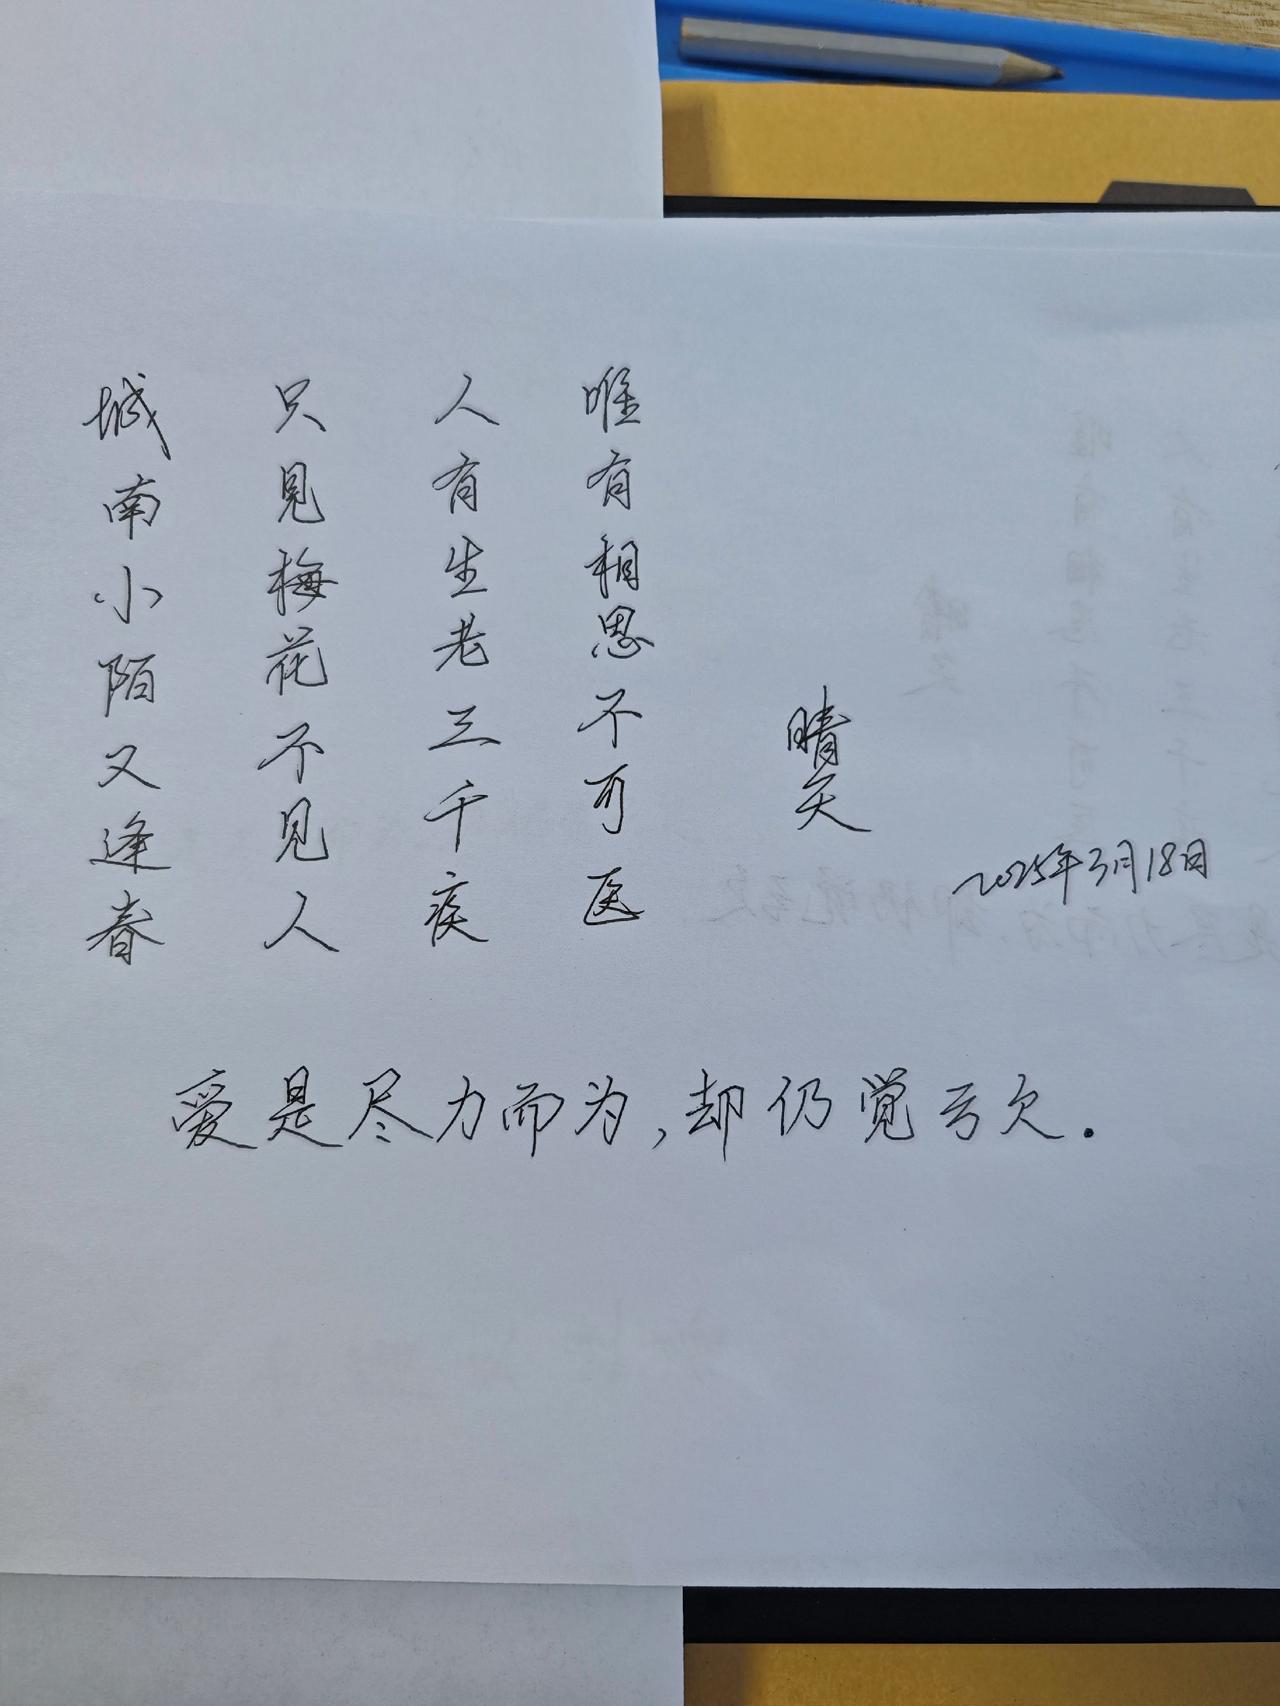 城南小陌又逢春
只见梅花不见人
人有生老三千疾
唯有相思不可医
晴天
2025年3月18日
爱是尽力而为,却仍觉亏欠.